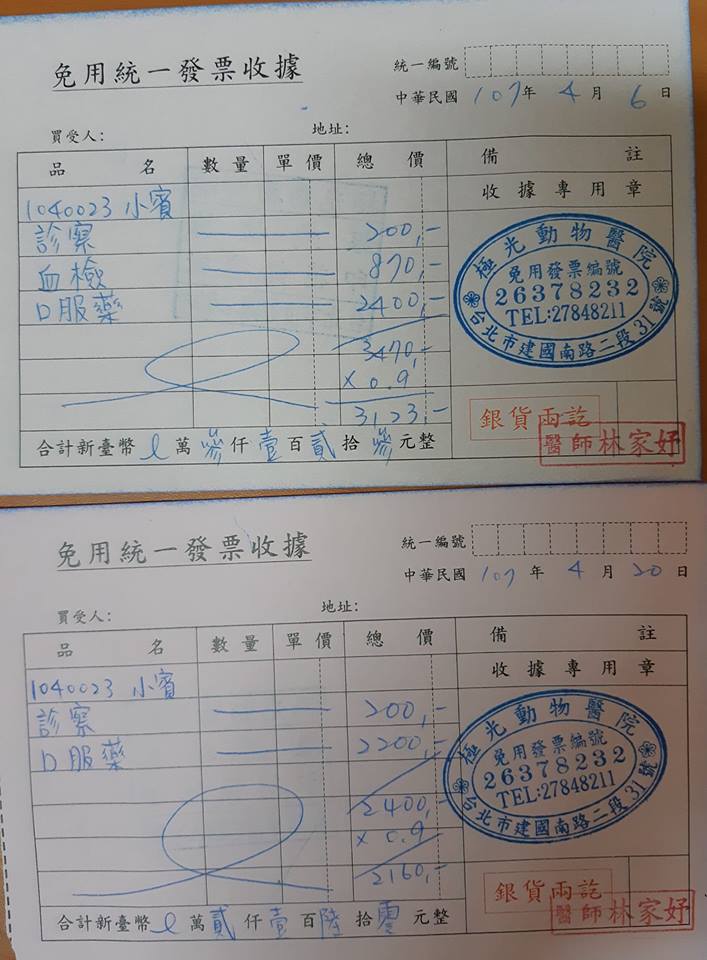 免用統一發票收據
統一編號
中華民國 107年 4月 6日
買受人: 地址:
品名 數量 單價 總價 備註
收據專用章
1040023 小賓
診察 200,-
血檢 870,-
口服藥 2400,-
3470,-
x 0.9
3123.-
極光動物醫院
免用發票編號
26378232
TEL:27848211
台北市建國南路二段31號
銀貨兩訖
醫師林家妤
合計新臺幣 萬 參仟壹百貳拾參元整
免用統一發票收據
統一編號
中華民國 107年 4月 20日
買受人: 地址:
品名 數量 單價 總價 備註
收據專用章
1040023 小賓
診察 200,-
口服藥 2200,-
2400,-
x 0.9
2160,-
極光動物醫院
免用發票編號
26378232
TEL:27848211
台北市建國南路二段31號
銀貨兩訖
醫師林家妤
合計新臺幣 萬貳仟壹百陸拾零元整